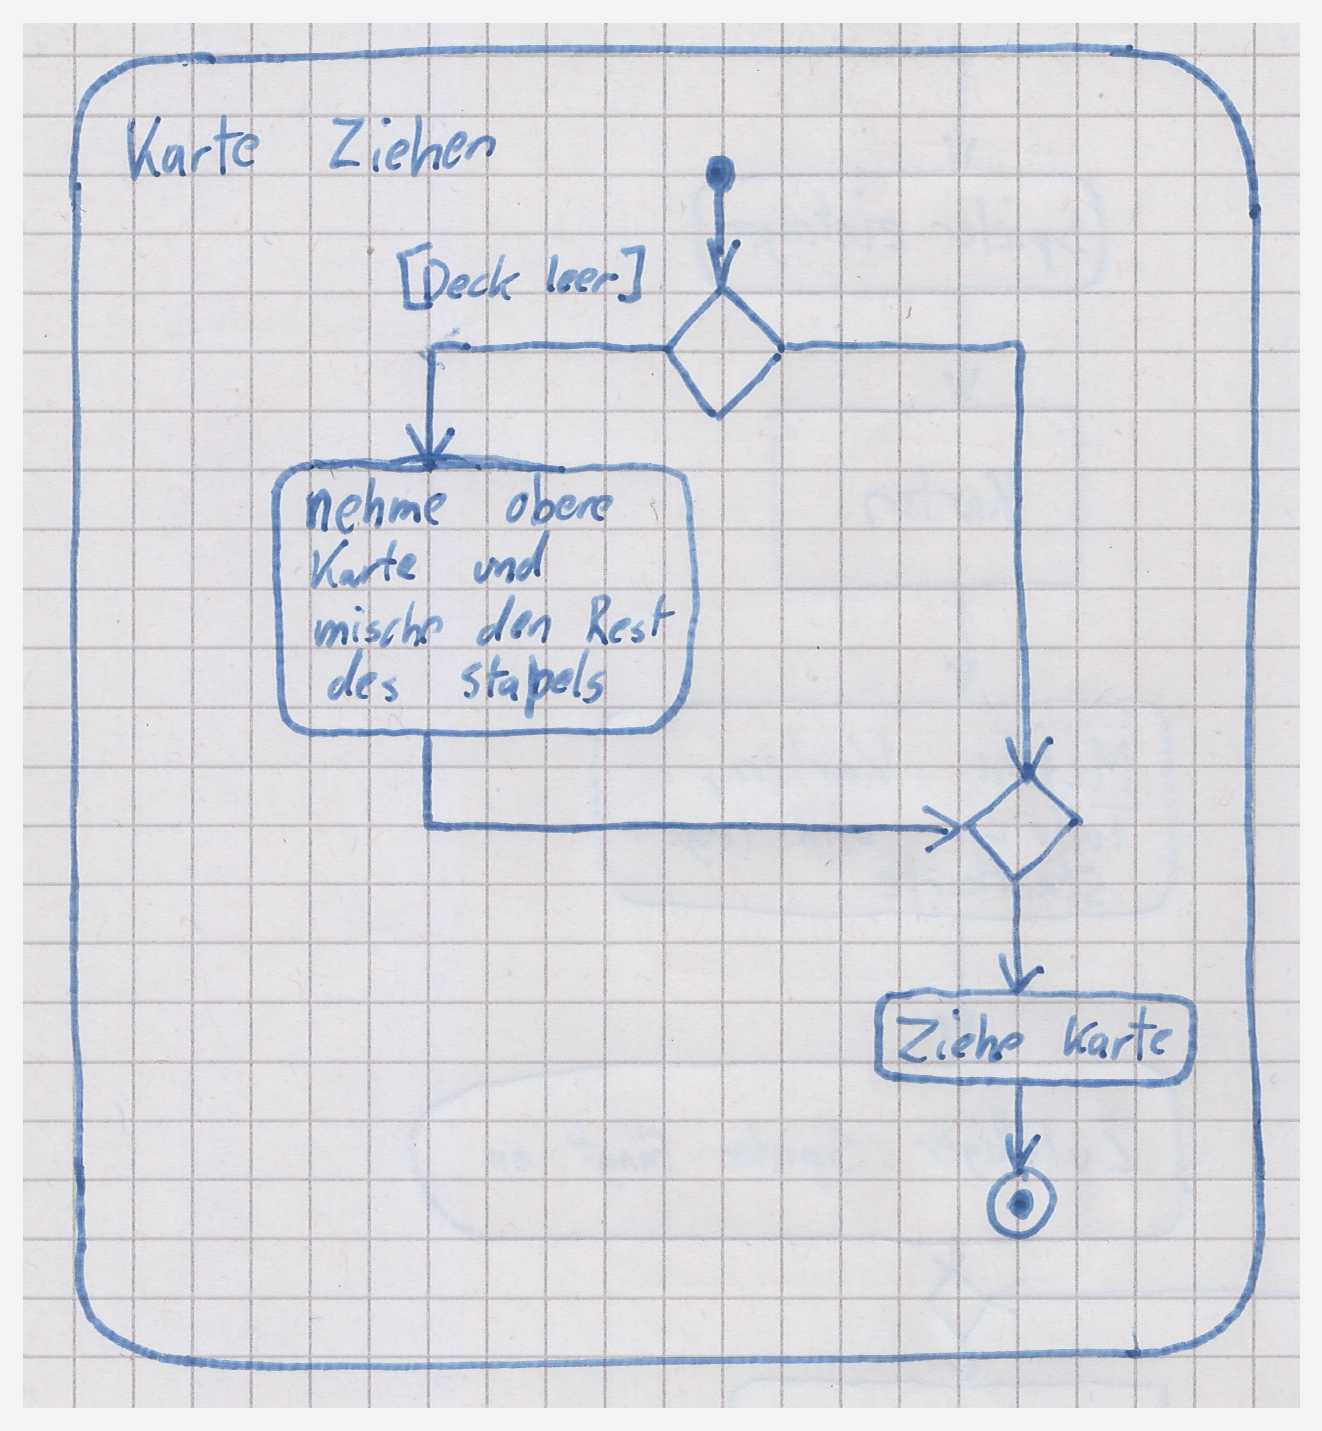 Karte Ziehen
[Deck leer]
nehme obere
Karte und
mische den Rest
des stapels
Ziehe Karte